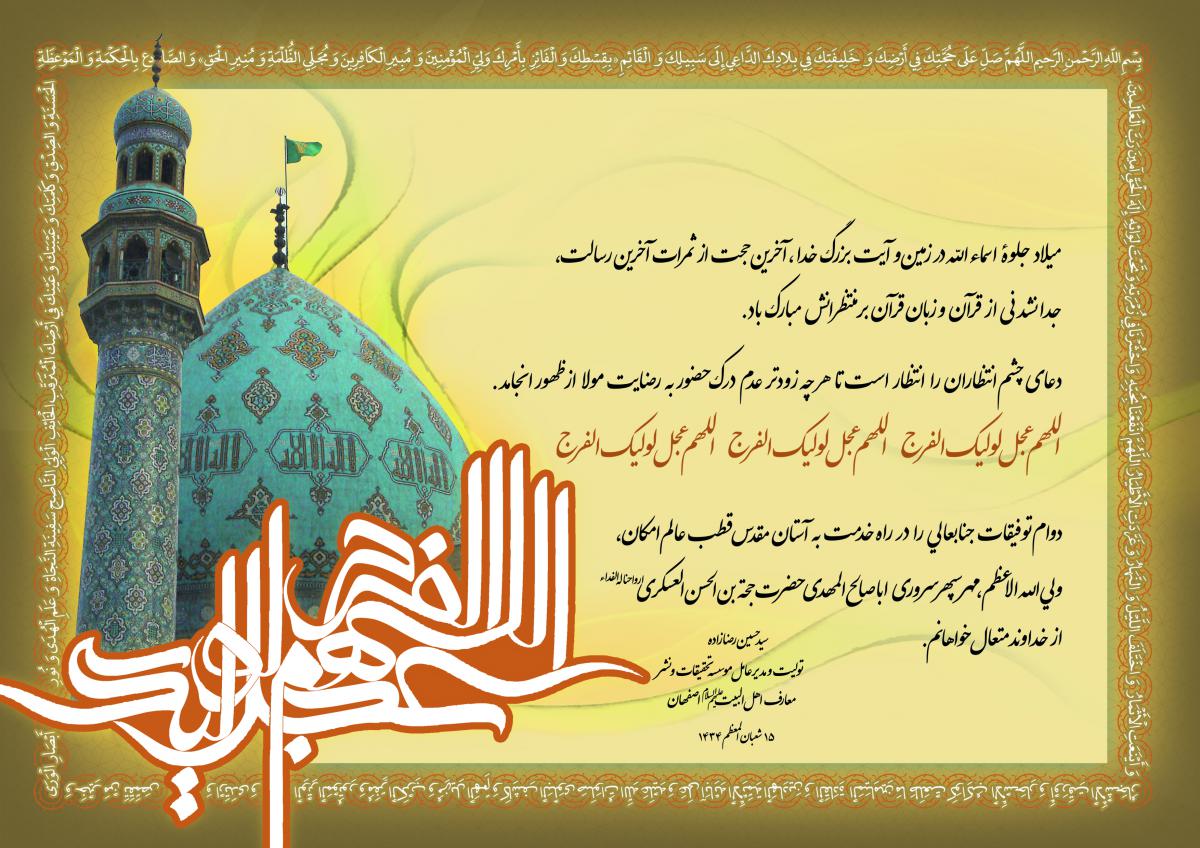 بِسْمِ اللهِ الرَّحْمنِ الرَّحیمِ اللّهُمَّ صَلِّ عَلی حُجَّتِكَ فِي أَرْضِكَ وَ خَلِيفَتِكَ فِي بِلادِكَ الدَّاعِي إِلَى سَبِيلِكَ وَ الْقَائِمِ بِقِسْطِكَ وَ الْفَائِزِ بِأَمْرِكَ وَلِيِّ الْمُؤْمِنِينَ وَ مُبِيرِ الْكَافِرِينَ وَ مُجَلِّي الظُّلْمَةِ وَ مُنِيرِ الْحَقِّ وَ الصَّادِعِ بِالْحِكْمَةِ وَ الْمَوْعِظَةِ
الْحَسَنَةِ وَ الصِّدْقِ وَ كَلِمَتِكَ وَ عَيْبَتِكَ وَ عَيْنِكَ فِي أَرْضِكَ الْمُتَرَقِّبِ الْخَائِفِ الْوَلِيِّ النَّاصِحِ سَفِينَةِ النَّجَاةِ وَ عَلَمِ الْهُدَى وَ نُورِ أَبْصَارِ الْوَرَى
میلاد جلوهٔ اسماء الله در زمین و آیت بزرگ خدا، آخرین حجت از ثمرات آخرین رسالت،
جدانشدنی از قرآن و زبان قرآن بر منتظرانش مبارک باد.
دعای چشم انتظاران را انتظار است تا هر چه زودتر عدم درک حضور به رضایت مولا از ظهور انجامد.
اللهم عجل لولیک الفرج اللهم عجل لولیک الفرج اللهم عجل لولیک الفرج
دوام توفیقات جنابعالي را در راه خدمت به آستان مقدس قطب عالم امکان،
ولي الله الاعظم، مهر سپهر سروری اباصالح المهدی حضرت حجة بن الحسن العسکری ارواحنا له الفداء
از خداوند متعال خواهانم.
سید حسین رضازاده
تولیت و مدیرعامل موسسه تحقیقات و نشر
معارف اهل البیت علیهم السلام اصفهان
۱۵ شعبان المعظم ۱۴۳۴
اللهم عجل لولیک الفرج